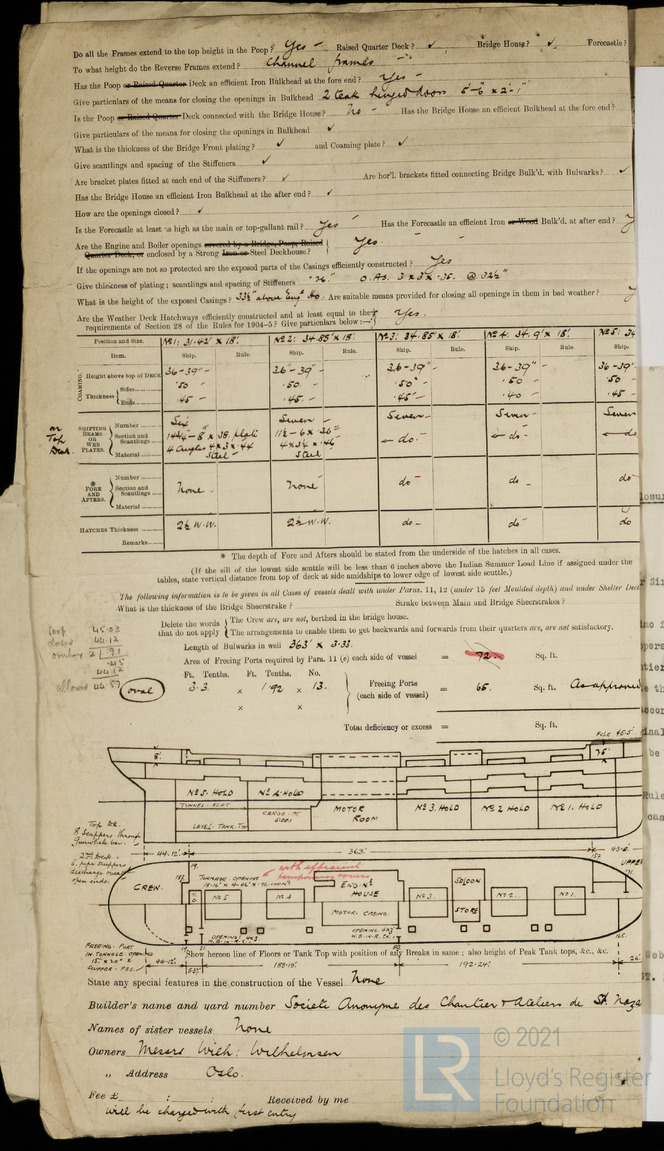 Do all the Frames extend to the top height in the Poop? Yes - Raised Quarter Deck? ✓ Bridge House? ✓. Forecastle?
To what height do the Reverse Frames extend? Channel frames
Has the Poop or Raised Quarter Deck an efficient Iron Bulkhead at the fore end? Yes -
Give particulars of the means for closing the openings in Bulkhead 2 teak hinged doors 5'-6" x 2'-1"
Is the Poop or Raised Quarter Deck connected with the Bridge House? No - Has the Bridge House an efficient Bulkhead at the fore end?
Give particulars of the means for closing the openings in Bulkhead ✓
What is the thickness of the Bridge Front plating? ✓ and Coaming plate? ✓
Give scantlings and spacing of the Stiffeners ✓
Are bracket plates fitted at each end of the Stiffeners? ✓ Are hor'l. brackets fitted connecting Bridge Bulk'd. with Bulwarks? ✓
Has the Bridge House an efficient Iron Bulkhead at the after end? ✓
How are the openings closed? ✓
Is the Forecastle at least as high as the main or top-gallant rail? Yes Has the Forecastle an efficient Iron or Wood Bulk'd. at after end? Y
Are the Engine and Boiler openings covered by a Bridge, Poop, Raised
Quarter Deck, or enclosed by a Strong Iron or Steel Deckhouse? Yes.
If the openings are not so protected are the exposed parts of the Casings efficiently constructed? Yes
Give thickness of plating; scantlings and spacing of Stiffeners O.As. 3 x 3 x .35. @ 32½"
What is the height of the exposed Casings? 33½" above Eng. Ho. Are suitable means provided for closing all openings in them in bad weather? Y
Are the Weather Deck Hatchways efficiently constructed and at least equal to the
requirements of Section 28 of the Rules for 1904-5? Give particulars below:— Yes.
Position and Size. No 1: 31.42' x 18'. No 2: 34.85' x 18'. No 3: 34.85' x 18'. No 4: 34.9' x 18'. No 5: 34
Item. Ship. Rule. Ship. Rule. Ship. Rule. Ship. Rule. Ship.
COAMING. Height above top of DECK 36-39" - 36-39" - 36-39" - 36-39" - 36-39"
Thickness Sides .50 - .50. - .50" - .50 - .50 -
Ends .45 - .45. - .45" - .40 - .45 -
on Top Deck.
SHIFTING BEAMS OR WEB PLATES. Number Six Seven - Seven - Seven - Seven
Section and Scantlings 8" x .38 plate 11½-6 x .36" ← do. ← do - ← do
4 angles 4 x 3 x .44 4 x 3½ x .46
Material Steel Steel
* FORE AND AFTERS. Number
Section and Scantlings None. None do - do - do
Material
HATCHES Thickness 2½ W.W. 2½ W.W. do - do do
Remarks
* The depth of Fore and Afters should be stated from the underside of the hatches in all cases.
(If the sill of the lowest side scuttle will be less than 6 inches above the Indian Summer Load Line if assigned under the
tables, state vertical distance from top of deck at side amidships to lower edge of lowest side scuttle.)
The following information is to be given in all Cases of vessels dealt with under Paras. 11, 12 (under 15 feet Moulded depth) and under Shelter Deck
What is the thickness of the Bridge Sheerstrake? Strake between Main and Bridge Sheerstrakes?
Delete the words that do not apply The Crew are, are not, berthed in the bridge house.
The arrangements to enable them to get backwards and forwards from their quarters are, are not satisfactory.
45.03
44.12
2 | .91
.45
44.12
allowed 44.57
Length of Bulwarks in well 363' x 3.33.
Area of Freeing Ports required by Para. 11 (e) each side of vessel = 72. Sq. ft.
Ft. Tenths. Ft. Tenths. No.
oval 3.3. x 1.92 x 13. Freeing Ports (each side of vessel) = 65. Sq. ft. As approved
x x
Total deficiency or excess = Sq. ft.
Fcle 45.5'
8' 7.6'
No 5. HOLD No 4. HOLD MOTOR ROOM No 3. HOLD No 2 HOLD No 1. HOLD
TUNNEL FLAT
Top Dk.
8 Scuppers through Gunwale bar.
2nd Deck.
6 pipe scuppers discharge overbd open ends.
44.12' 363' 43.2'
with efficient temporary covers
TONNAGE OPENING
CREW. No 5 No 4 ENGINE HOUSE No 3. SALOON STORE No 2. No 1. UPPER
MOTOR. CASING.
OPENING 4x3
OPENING 4x3
FREEING PORT
IN TONNAGE OPENING
SCUPPER P&S.
Show hereon line of Floors or Tank Top with position of any Breaks in same; also height of Peak Tank tops, &c., &c.
44.12' 192.24' 26'
State any special features in the construction of the Vessel None
Builder's name and yard number Societe Anonyme des Chantier & Ateliers de St. Naza
Names of sister vessels None
Owners Messrs Wilh: Wilhelmsen
,, Address Oslo.
Fee £ : : Received by me
Will be charged with first entry
LR
© 2021
Lloyd's Register
Foundation